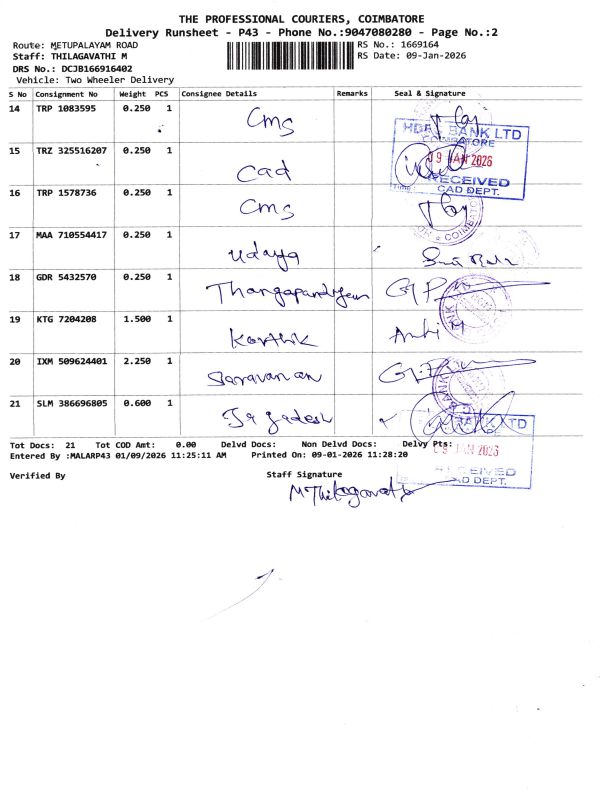 THE PROFESSIONAL COURIERS, COIMBATORE
Delivery Runsheet - P43 - Phone No.:9047080280 - Page No.:2
Route: METUPALAYAM ROAD RS No.: 1669164
Staff: THILAGAVATHI M RS Date: 09-Jan-2026
DRS No.: DCJB166916402
Vehicle: Two Wheeler Delivery
S No Consignment No Weight PCS Consignee Details Remarks Seal & Signature
14 TRP 1083595 0.250 1 Cms
HDFC BANK LTD
COIMBATORE
15 TRZ 325516207 0.250 1 Cad 09 JAN 2026
RECEIVED
CAD DEPT.
16 TRP 1578736 0.250 1 Cms
17 MAA 710554417 0.250 1 Udaya
18 GDR 5432570 0.250 1 Thangapandiyan
19 KTG 7204208 1.500 1 Karthik
20 IXM 509624401 2.250 1 Saravanan
21 SLM 386696805 0.600 1 Jagadesh
BANK LTD
Tot Docs: 21 Tot COD Amt: 0.00 Delvd Docs: Non Delvd Docs: Delvy Pts:
09 JAN 2026
Entered By :MALARP43 01/09/2026 11:25:11 AM Printed On: 09-01-2026 11:28:20
RECEIVED
CAD DEPT.
Verified By Staff Signature
M Thilagavathi